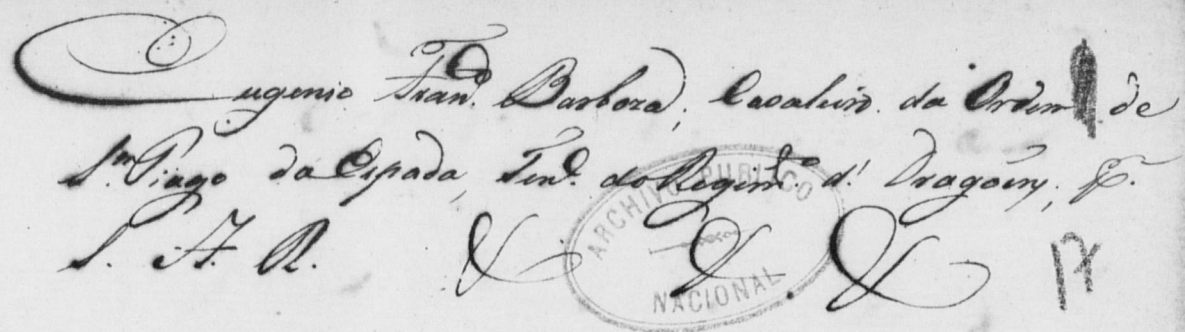 Eugenio Fran.co Barboza, Cavaleiro da Ordem de
S.m Tiago da Espada, Ten.e do Regim.to d' Dragoens, P.
S. A. R. & & &
ARCHIVO PUBLICO
NACIONAL
17